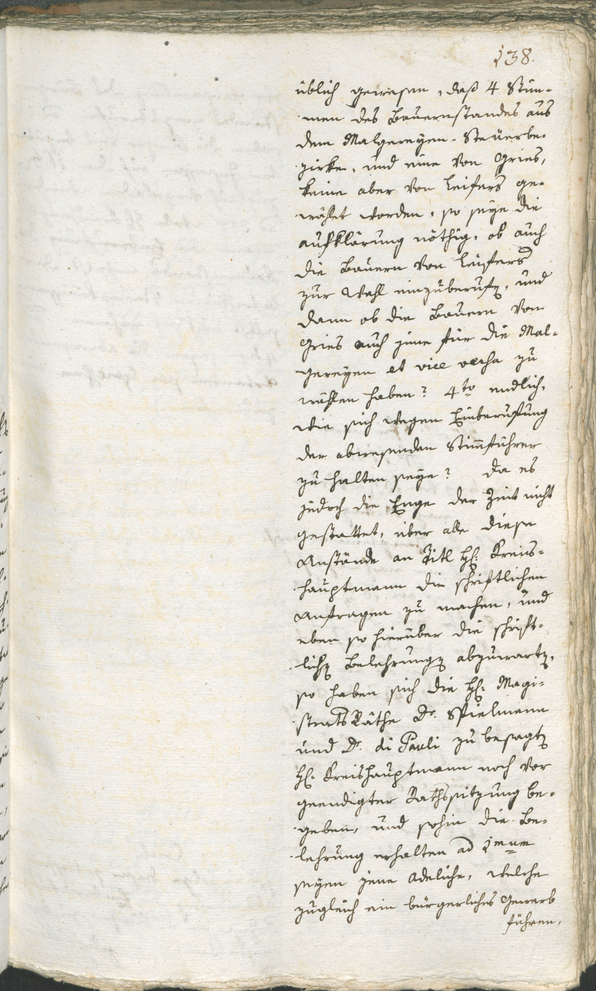 138.
üblich gewesen, daß 4 Stim-
men des Bauernstandes aus
dem Malgereyen-Steuerbe-
zirke, und eine von Gries,
keine aber von Leifers ge-
wählt worden, so seye die
Aufklärung nöthig, ob auch
die Bauern von Leifers
zur Wahl einzuberufen, und
dann ob die Bauern von
Gries auch jene für die Mal-
gereyen et vice versa zu
wählen haben? 4to endlich,
wie sich wegen Einberuffung
der abwesenden Stimmführer
zu halten seye? Da es
jedoch die Enge der Zeit nicht
gestattet, über alle diese
Anstände an Titl H. Kreis-
hauptmann die schriftlichen
Anfragen zu machen, und
eben so hierüber die schrift-
lichen Belehrungen abzuwarten,
so haben sich die H. Magi-
strats Räthe Dr. Spielmann
und Dr. di Pauli zu besagten
H. Kreishauptmann noch vor
geendigter Rathssitzung be-
geben, und sohin die Be-
lehrung erhalten ad 1mum
seyen jene Adeliche, welche
zugleich ein bürgerliches Gewerb
führen,